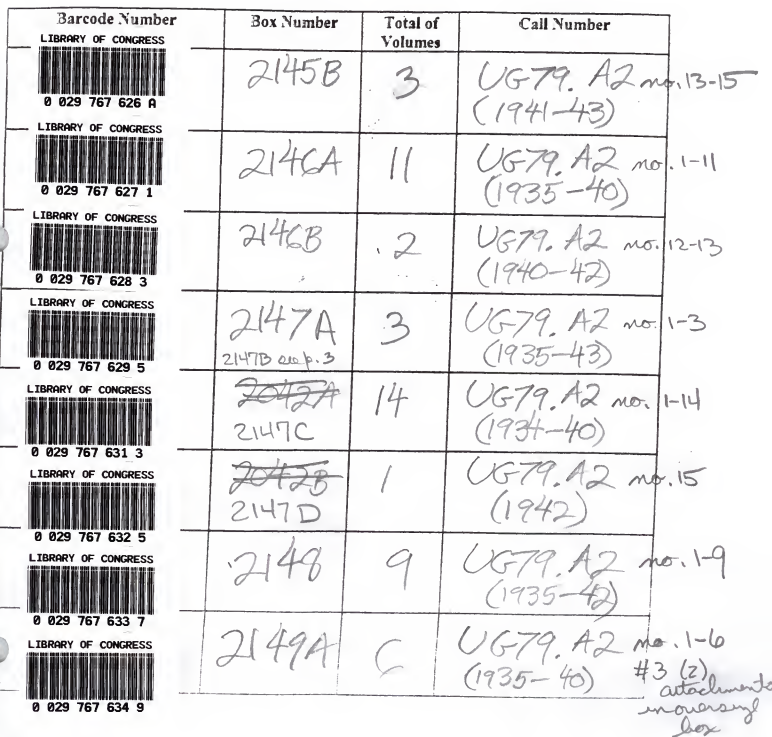 Barcode Number Box Number Total of Volumes Call Number
LIBRARY OF CONGRESS
0 029 767 626 A
2145B 3 UG79.A2 no. 13-15
(1941-43)
LIBRARY OF CONGRESS
0 029 767 627 1
2146A 11 UG79.A2 no. 1-11
(1935-40)
LIBRARY OF CONGRESS
0 029 767 628 3
2146B 2 UG79.A2 no. 12-13
(1940-42)
LIBRARY OF CONGRESS
0 029 767 629 5
2147A 3 UG79.A2 no. 1-3
2147B see p. 3 (1935-43)
LIBRARY OF CONGRESS
0 029 767 631 3
2042A 14 UG79.A2 no. 1-14
2147C (1934-40)
LIBRARY OF CONGRESS
0 029 767 632 5
2042B 1 UG79.A2 no. 15
2147D (1942)
LIBRARY OF CONGRESS
0 029 767 633 7
2148 9 UG79.A2 no. 1-9
(1935-42)
LIBRARY OF CONGRESS
0 029 767 634 9
2149A 6 UG79.A2 no. 1-6
(1935-40) #3 (2)
attachments
in oversize
box